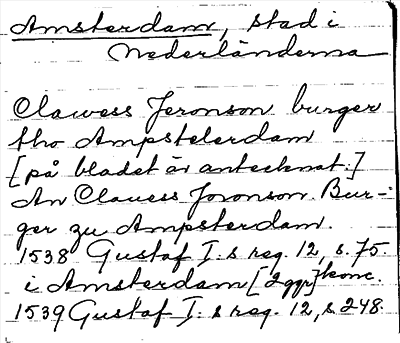 Amsterdam, stad i
Nederländerna
Clawess Jeronson burger
tho Ampstelerdam
[på bladet är antecknat:]
An Clauess Joronson Bur-
ger zu Ampsterdam.
1538 Gustaf I:s reg. 12, s. 75.
i Amsterdam [2 ggr] konc.
1539 Gustaf I:s reg. 12, s. 248.